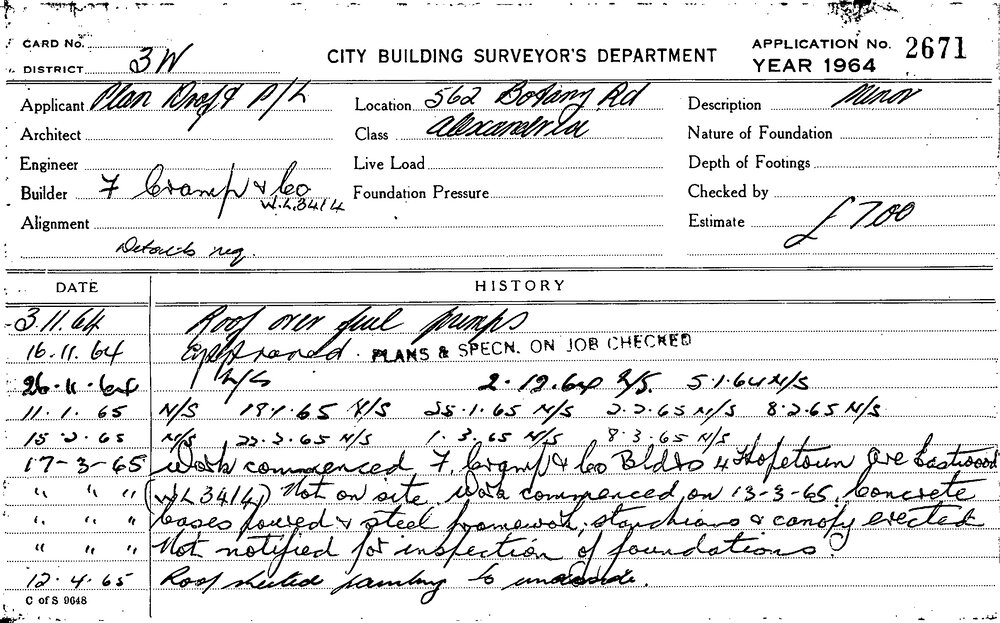 CARD No.
DISTRICT 3W
CITY BUILDING SURVEYOR'S DEPARTMENT
APPLICATION No. 2671
YEAR 1964
Applicant Plan Draft P/L
Location 562 Botany Rd
Description Minor
Architect
Class Alexandria
Nature of Foundation
Engineer
Live Load
Depth of Footings
Builder F Cramp & Co
W.L 3414
Foundation Pressure
Checked by
Alignment
Estimate £700
Details req.
DATE HISTORY
3.11.64 Roof over fuel pumps
16.11.64 Approved. PLANS & SPECN. ON JOB CHECKED
26.11.64 N/S 2.12.64 N/S. 5.1.64 N/S
11.1.65 N/S 18.1.65 N/S 25.1.65 N/S 2.2.65 N/S 8.2.65 N/S
15.2.65 N/S 22.2.65 N/S 1.3.65 N/S 8.3.65 N/S
17-3-65 Work commenced F. Cramp & Co Bldrs 4 Hopetoun Ave Eastwood
" " " (W.L 3414) Not on site. Work commenced on 13-3-65. Concrete
" " " bases poured & steel framework, stanchions & canopy erected
" " " Not notified for inspection of foundations.
12.4.65 Roof sheeted painting to underside.
C of S 9648